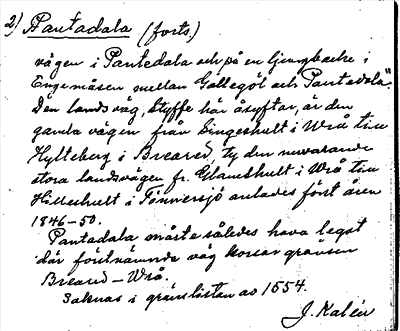 2) Pantadala (forts.)
vägen i Pantedala och på en ljungbacke i
Engemåsen mellan Gallegöl och Pantedala".
Den landsväg, Styffe här åsyftar, är den
gamla vägen från Singeshult i Wrå till
Hylteberg i Breared, ty den nuvarande
stora landsvägen fr. i Wrå till
Hilleshult i Tönnersjö anlades först åren
1846-50.
Pantadala måste således hava legat
där förstnämnda väg korsar gränsen
Breared - Wrå.
Saknas i gränslistan av 1554.
J. Kalén